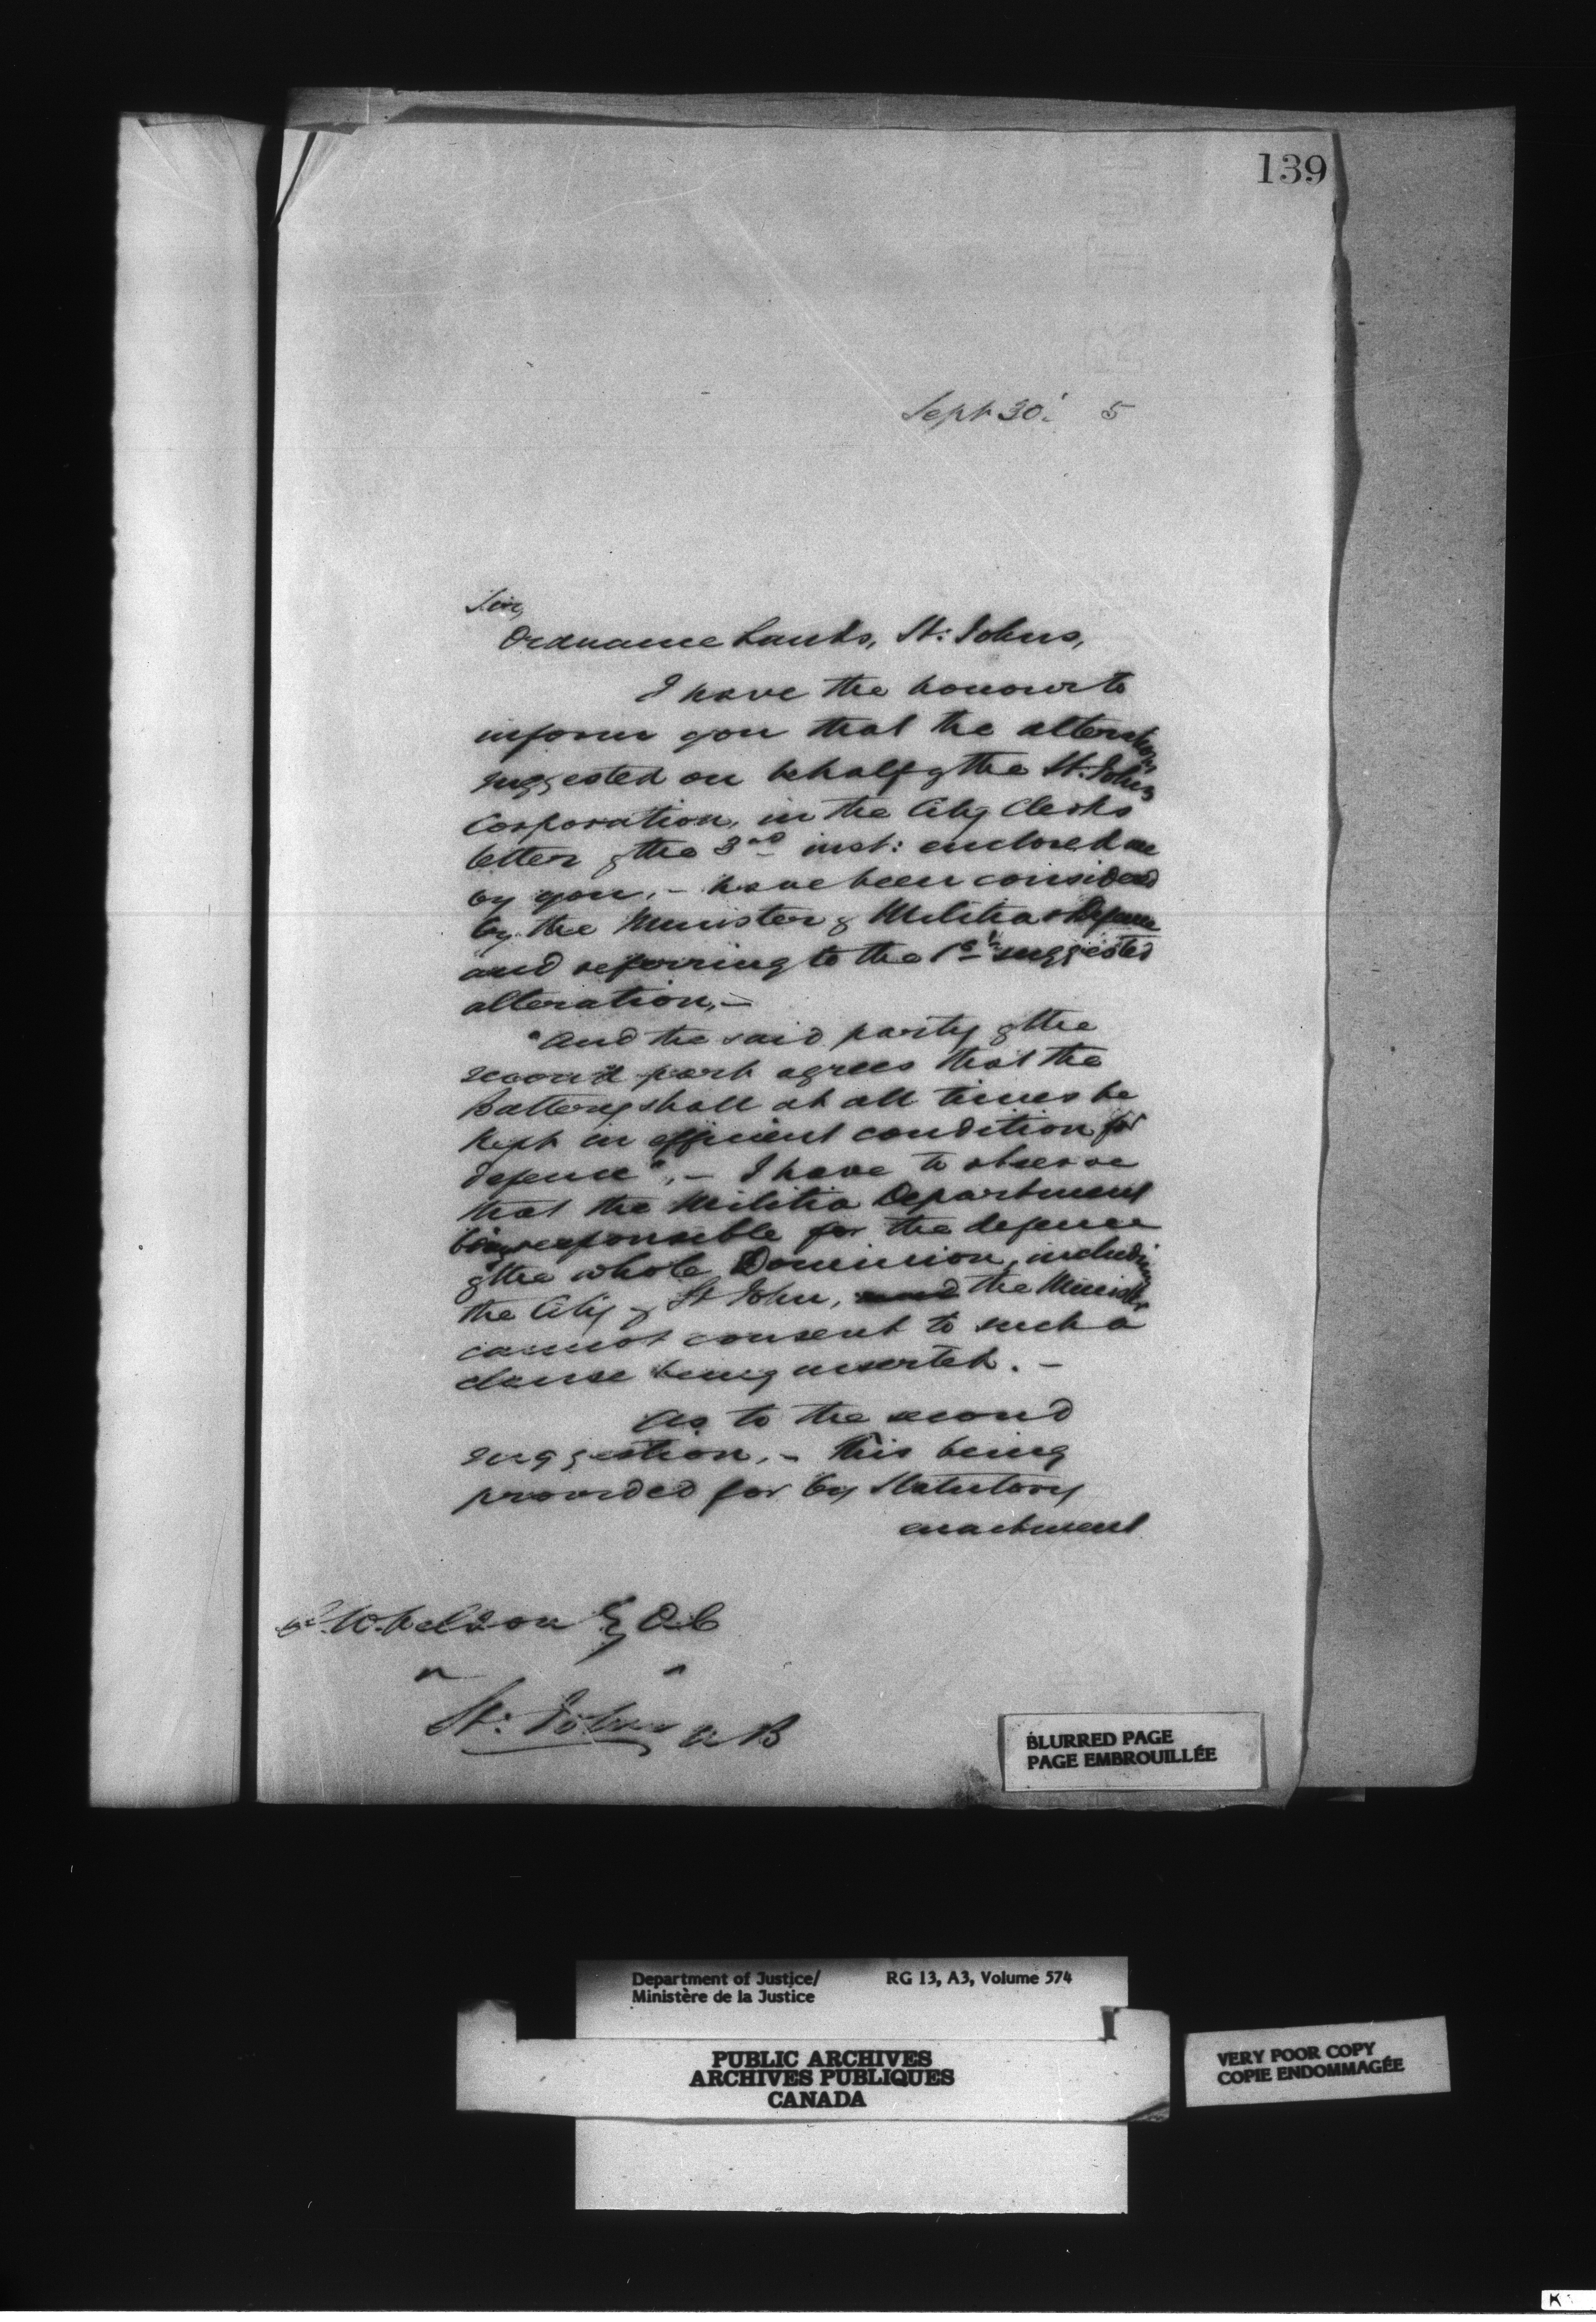 139
Sept 30. 5
Sir,
Ordnance Lands, St. Johns,
I have the honour to
inform you that the alterations
suggested on behalf of the St. Johns
Corporation, in the City Clerks
letter of the 3rd inst: enclosed me
by you, – have been considered
by the Minister of Militia & Defence
and referring to the 1st suggested
alteration, –
"And the said party of the
second part agrees that the
Battery shall at all times be
kept in efficient condition for
defence", – I have to observe
that the Militia Department
being responsible for the defence
of the whole Dominion, including
the City of St John, and the Minister
cannot consent to such a
clause being inserted. –
As to the second
suggestion, – this being
provided for by Statutory
enactment
W. Weldon Esq Q.C
" "
St: Johns N B
BLURRED PAGE
PAGE EMBROUILLÉE
Department of Justice/ RG 13, A3, Volume 574
Ministère de la Justice
PUBLIC ARCHIVES
ARCHIVES PUBLIQUES
CANADA
VERY POOR COPY
COPIE ENDOMMAGÉE
K